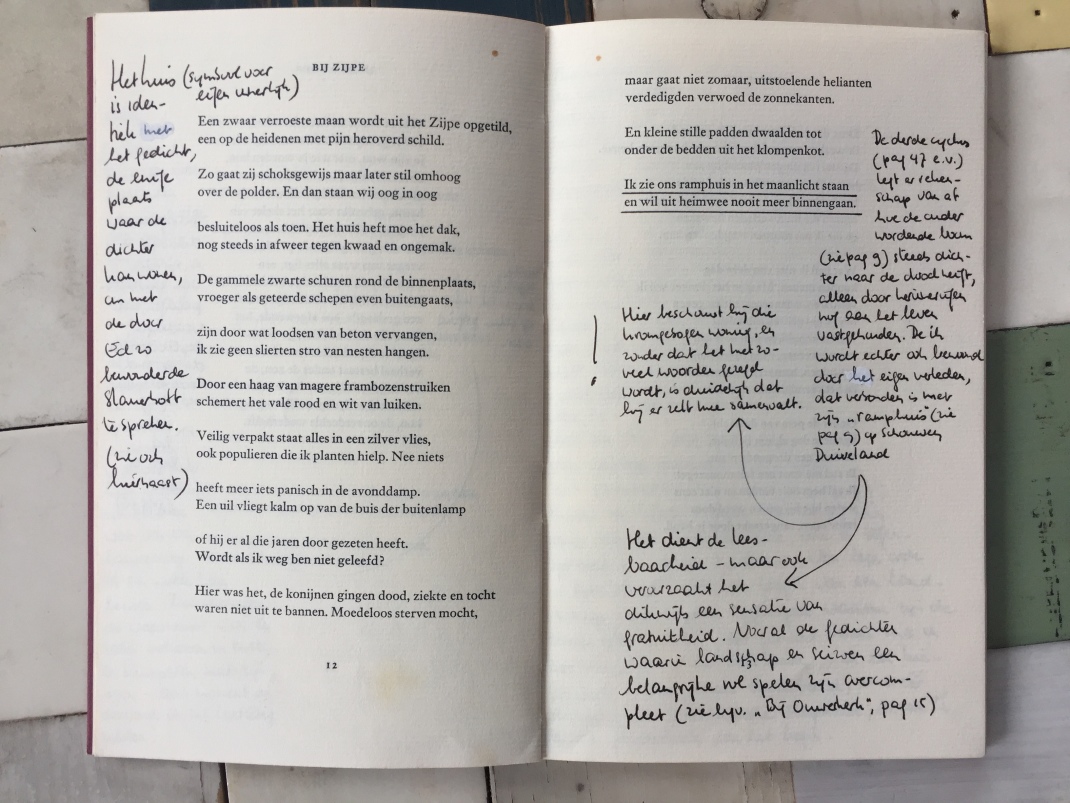 BIJ ZIJPE
Een zwaar verroeste maan wordt uit het Zijpe opgetild,
een op de heidenen met pijn heroverd schild.
Zo gaat zij schoksgewijs maar later stil omhoog
over de polder. En dan staan wij oog in oog
besluiteloos als toen. Het huis heft moe het dak,
nog steeds in afweer tegen kwaad en ongemak.
De gammele zwarte schuren rond de binnenplaats,
vroeger als geteerde schepen even buitengaats,
zijn door wat loodsen van beton vervangen,
ik zie geen slierten stro van nesten hangen.
Door een haag van magere frambozenstruiken
schemert het vale rood en wit van luiken.
Veilig verpakt staat alles in een zilver vlies,
ook populieren die ik planten hielp. Nee niets
heeft meer iets panisch in de avonddamp.
Een uil vliegt kalm op van de buis der buitenlamp
of hij er al die jaren door gezeten heeft.
Wordt als ik weg ben niet geleefd?
Hier was het, de konijnen gingen dood, ziekte en tocht
waren niet uit te bannen. Moedeloos sterven mocht,
12
Het huis (symbool voor
eigen innerlijk)
is iden-
tiek met
het gedicht,
de enige
plaats
waar de
dichter
kan wonen,
om met
de door
Ed zo
bewonderde
Slauerhoff
te spreken.
(zie ook
hiernaast)
maar gaat niet zomaar, uitstoelende helianten
verdedigden verwoed de zonnekanten.
En kleine stille padden dwaalden tot
onder de bedden uit het klompenkot.
Ik zie ons ramphuis in het maanlicht staan
en wil uit heimwee nooit meer binnengaan.
De derde cyclus
(pag 47 e.v.)
legt er reken-
schap van af
hoe de ouder
wordende
(zie pag 9) steeds dich-
ter naar de dood
alleen door
nog aan het leven
vastgehouden. De ik
wordt echter ook bewoond
door het eigen verleden,
dat verbonden is met
zijn „ramphuis" (zie
pag 9) op Schouwen
Duiveland
!
Hier beschouwt hij die
kromgebogen woning, en
zonder dat het met zo-
veel woorden gezegd
wordt, is duidelijk dat
hij er zelf mee samenvalt.
Het dient de lees-
baarheid – maar ook
veroorzaakt het
dikwijls een sensatie van
gratuitheid. Vooral de gedichten
waarin landschap en seizoen een
belangrijke rol spelen zijn overcom-
pleet (zie bijv. „Bij Ouwerkerk", pag 15)